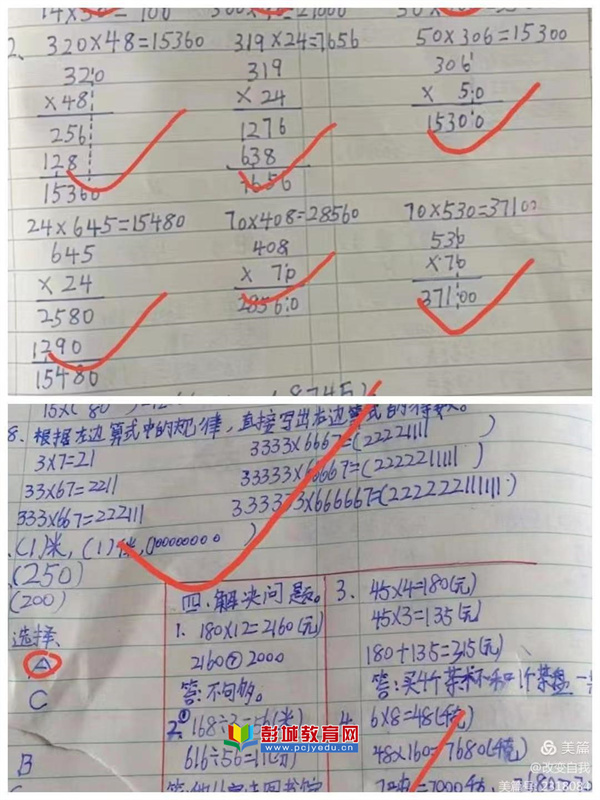 2、320×48=15360 319×24=7656 50×306=15300
320 319 306
×48 ×24 × 50
256 1276 15300
128 638
15360 7656
24×645=15480 70×408=28560 70×530=37100
645 408 530
×24 × 70 ×70
2580 28560 37100
1290
15480
8. 根据左边算式中的规律,直接写出右边算式的得数。
3×7=21 3333×6667=(22221111)
33×67=2211 33333×66667=(2222211111)
333×667=222111 333333×666667=(222222111111)
(250)
(200)
选择、
A
C
B
四、解决问题。
1. 180×12=2160(元)
2160 2000
答:不够。
2.① 168÷3=56(米)
616÷56=11(分)
3. 45×4=180(元)
45×3=135(元)
180+135=315(元)
答:买4个
4. 6×8=48(千克)
48×160=7680(千克)
彭城教育网
www.pcjyedu.cn
美篇
@改变自我